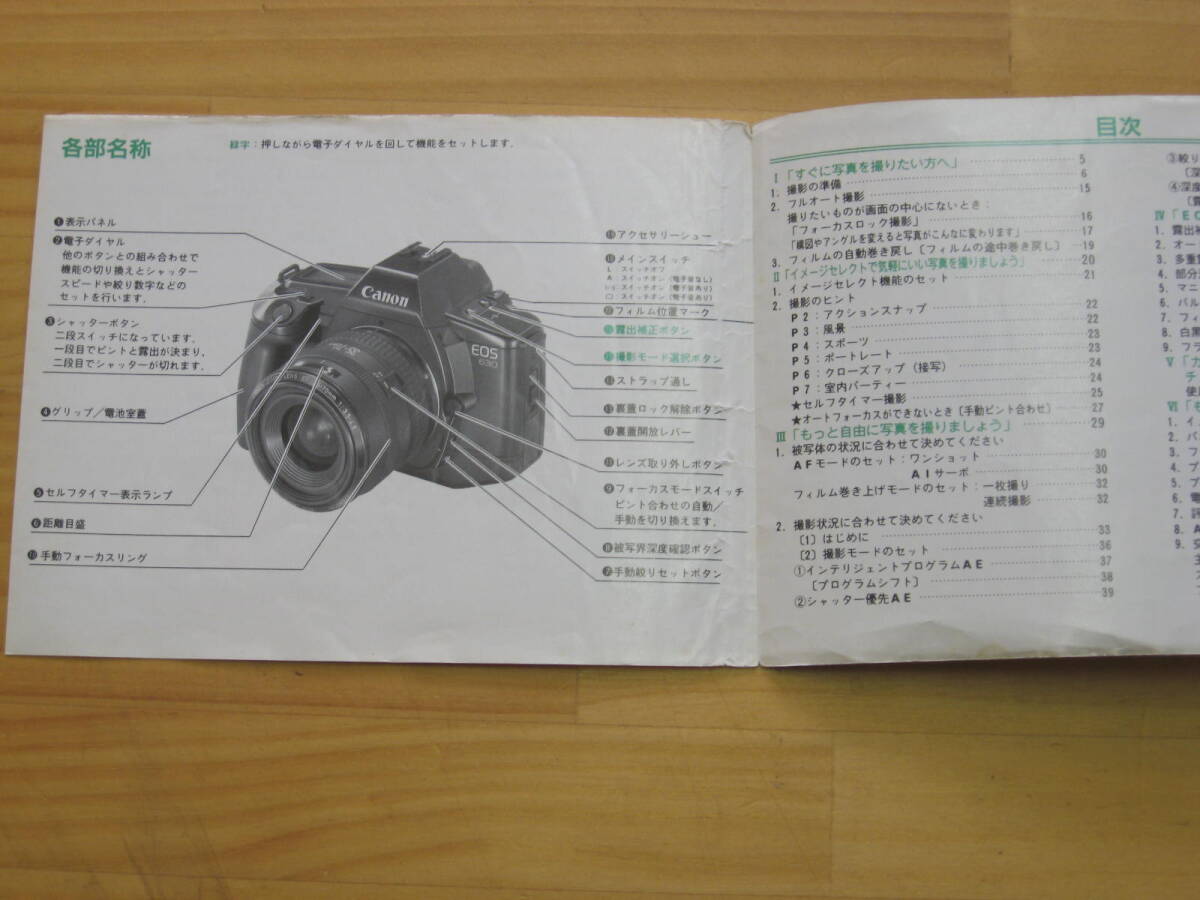 各部名称
緑字：押しながら電子ダイヤルを回して機能をセットします。
❶表示パネル
❷電子ダイヤル
他のボタンとの組み合わせで
機能の切り換えとシャッター
スピードや絞り数字などの
セットを行います。
❸シャッターボタン
二段スイッチになっています。
一段目でピントと露出が決まり、
二段目でシャッターが切れます。
❹グリップ／電池室蓋
❺セルフタイマー表示ランプ
❻距離目盛
手動フォーカスリング
Canon
EOS
630
アクセサリーシュー
メインスイッチ
L：スイッチオフ
A：スイッチオン（電子音なし）
スイッチオン（電子音あり）
スイッチオン（電子音あり）
フィルム位置マーク
露出補正ボタン
撮影モード選択ボタン
ストラップ通し
⓭裏蓋ロック解除ボタン
⓬裏蓋開放レバー
⓫レンズ取り外しボタン
❾フォーカスモードスイッチ
ピント合わせの自動／
手動を切り換えます。
❽被写界深度確認ボタン
❼手動絞りセットボタン
目次
I「すぐに写真を撮りたい方へ」 5
1. 撮影の準備 6
2. フルオート撮影 15
撮りたいものが画面の中心にないとき：
「フォーカスロック撮影」 16
「構図やアングルを変えると写真がこんなに変わります」 17
3. フィルムの自動巻き戻し〔フィルムの途中巻き戻し〕 19
II「イメージセレクトで気軽にいい写真を撮りましょう」 20
1. イメージセレクト機能のセット 21
2. 撮影のヒント
P2：アクションスナップ 22
P3：風景 22
P4：スポーツ 23
P5：ポートレート 23
P6：クローズアップ（接写） 24
P7：室内パーティー 24
★セルフタイマー撮影 25
★オートフォーカスができないとき〔手動ピント合わせ〕 27
III「もっと自由に写真を撮りましょう」 29
1. 被写体の状況に合わせて決めてください
AFモードのセット：ワンショット 30
AIサーボ 30
フィルム巻き上げモードのセット：一枚撮り 32
連続撮影 32
2. 撮影状況に合わせて決めてください
〔1〕はじめに 33
〔2〕撮影モードのセット 36
①インテリジェントプログラムAE 37
〔プログラムシフト〕 38
②シャッター優先AE 39
③絞り
④深度
IV「EO
1. 露出補
2. オー
3. 多重
4. 部分
5. マニ
6. バル
7. フィ
8. 白黒
9. フラ
V「カ
チ
使
VI
1. イ
3. フ
5. プ
8. A